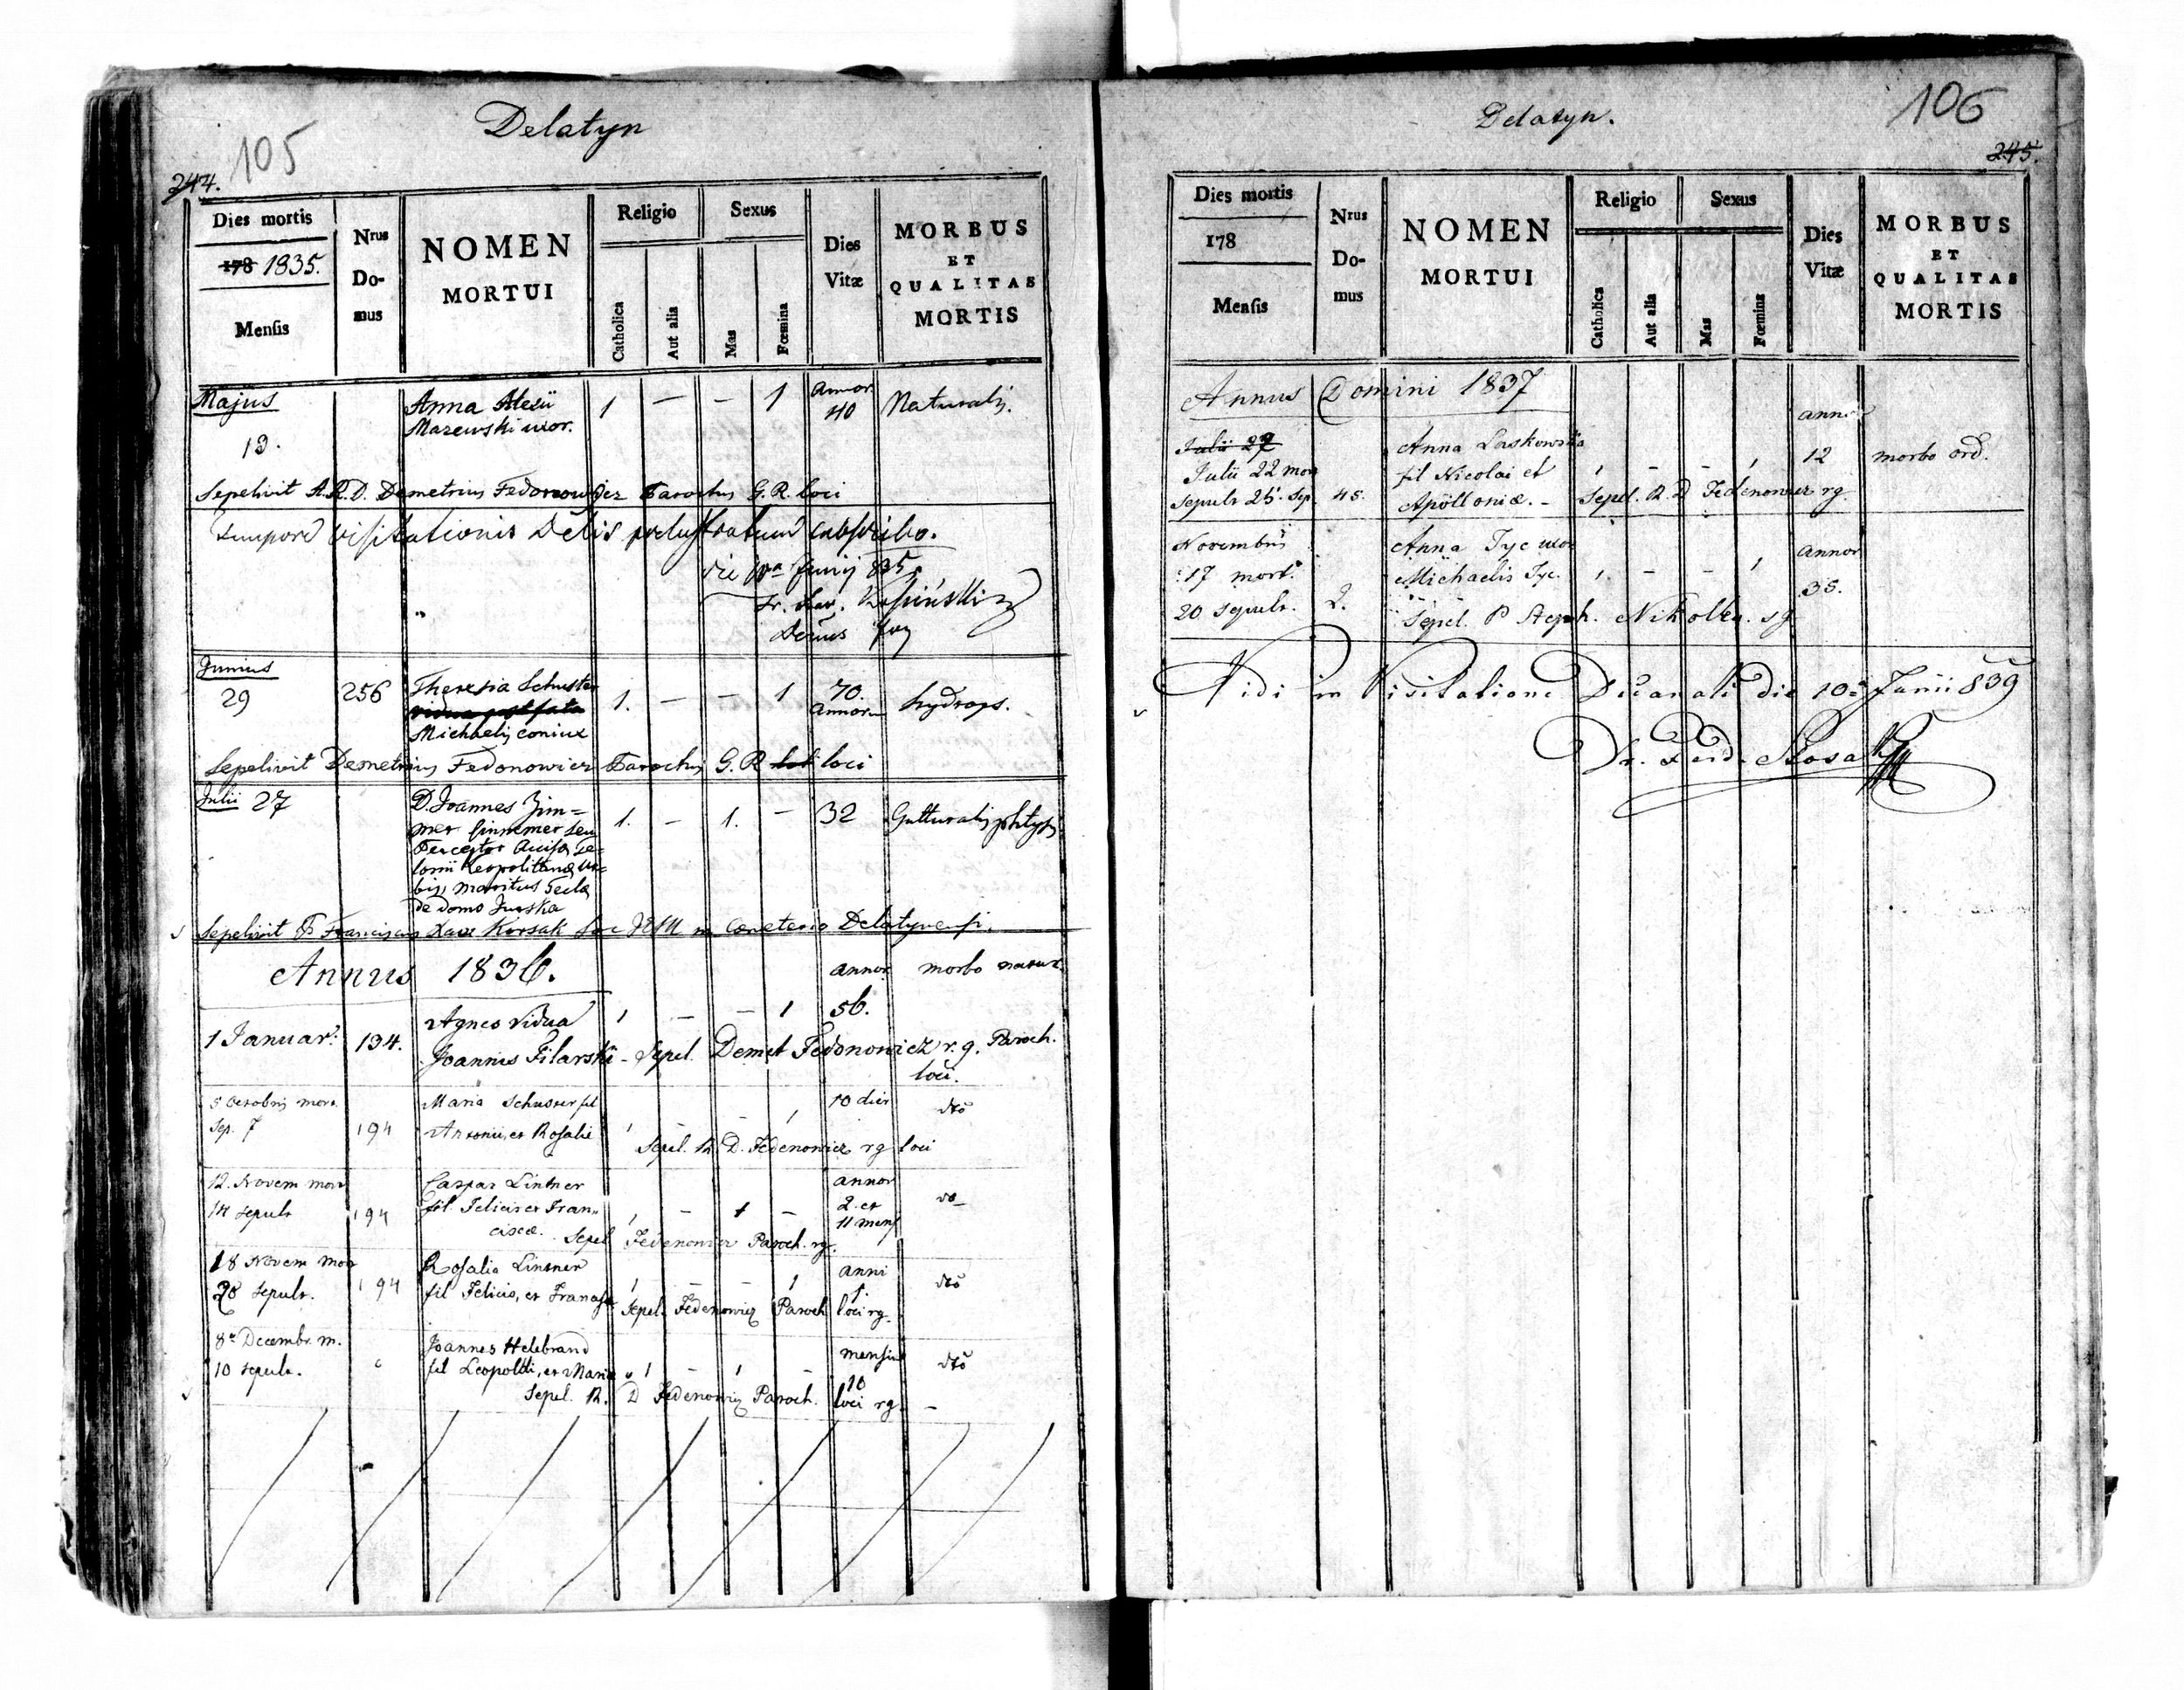 105
Delatyn
244.
Dies mortis
178 1835.
Mensis
Nrus
Do-
mus
NOMEN
MORTUI
Religio
Catholica
Aut alia
Sexus
Mas
Fœmina
Dies
Vitæ
MORBUS
ET
QUALITAS
MORTIS
Majus
13.
Anna Alexii
Mazewski uxor.
1 — — 1
Annor.
40
Naturalis.
Sepelivit A.R.D. Demetrius Fedonowicz Parochus G.R. loci
Tempore visitationis Delis perlustratum subscribo.
die Junij 835
Junius
29
256
Theresia Schuster
vidua post fata
Michaelis coniux
1. — — 1
70.
Annorum
hydrops.
Sepelivit Demetrius Fedonowicz Parochus G.R. loci
Julii 27
D. Joannes Zim=
mer Einnemer seu
Perceptor
Leopolitanæ Ur=
bis, maritus Teclæ
de domo Jurska
1. — 1. —
32
Gutturalis phtysis
Sepelivit P. Franciscus Xav. Korsak Soc JESU in Cœmeterio Delatynensi.
Annus 1836.
annor
morbo natur.
56.
1 Januar:
134.
Agnes vidua
1 — — 1
Joannis Pilarski - Sepel. Demet Fedonowicz r. g. Paroch.
loci.
5 Octobris mort.
Sep. 7
194
Maria Schuster fil
Antonii, et Rosalie
1 — — 1
10 dier
dtõ
Sepel. R. D. Fedenowicz rg loci
12. Novem mort
14 sepult
194
Caspar Lintner
fil. Felicis et Fran=
ciscæ.
1 — 1 —
annor
2. et
11 mens
Sepel Fedenowicz Paroch. rg.
18 Novem mort
20 sepult.
194
Rosalia Lintner
fil Felicis, et Francisc
1 — — 1
anni
1.
dtõ
Sepel. Fedenowicz Paroch loci rg.
8a Decembr. m.
10 sepult.
Joannes Helebrand
fil Leopoldi, et Marie
1 — 1 —
mensiu
10
dtõ
Sepel. R. D Fedenowicz Paroch. loci rg. —
106
Delatyn.
245.
Dies mortis
178
Mensis
Nrus
Do-
mus
NOMEN
MORTUI
Religio
Catholica
Aut alia
Sexus
Mas
Fœmina
Dies
Vitæ
MORBUS
ET
QUALITAS
MORTIS
Annus Domini 1837
Julii 27
Julii 22 mor
Sepult 25. Sep.
45.
Anna Laskowska
fil Nicolai et
Apolloniæ. -
1 - - 1
annor
12
morbo ord.
Sepel. R. D Fedenowicz rg
Novembris
17 mort.
20 sepult.
2.
Anna Tyc uxor
Michaelis Tyc.
1. - - 1
annor
35.
Sepel. P Steph. sg
Vidi in Visitatione Decanali die 10a Junii 839